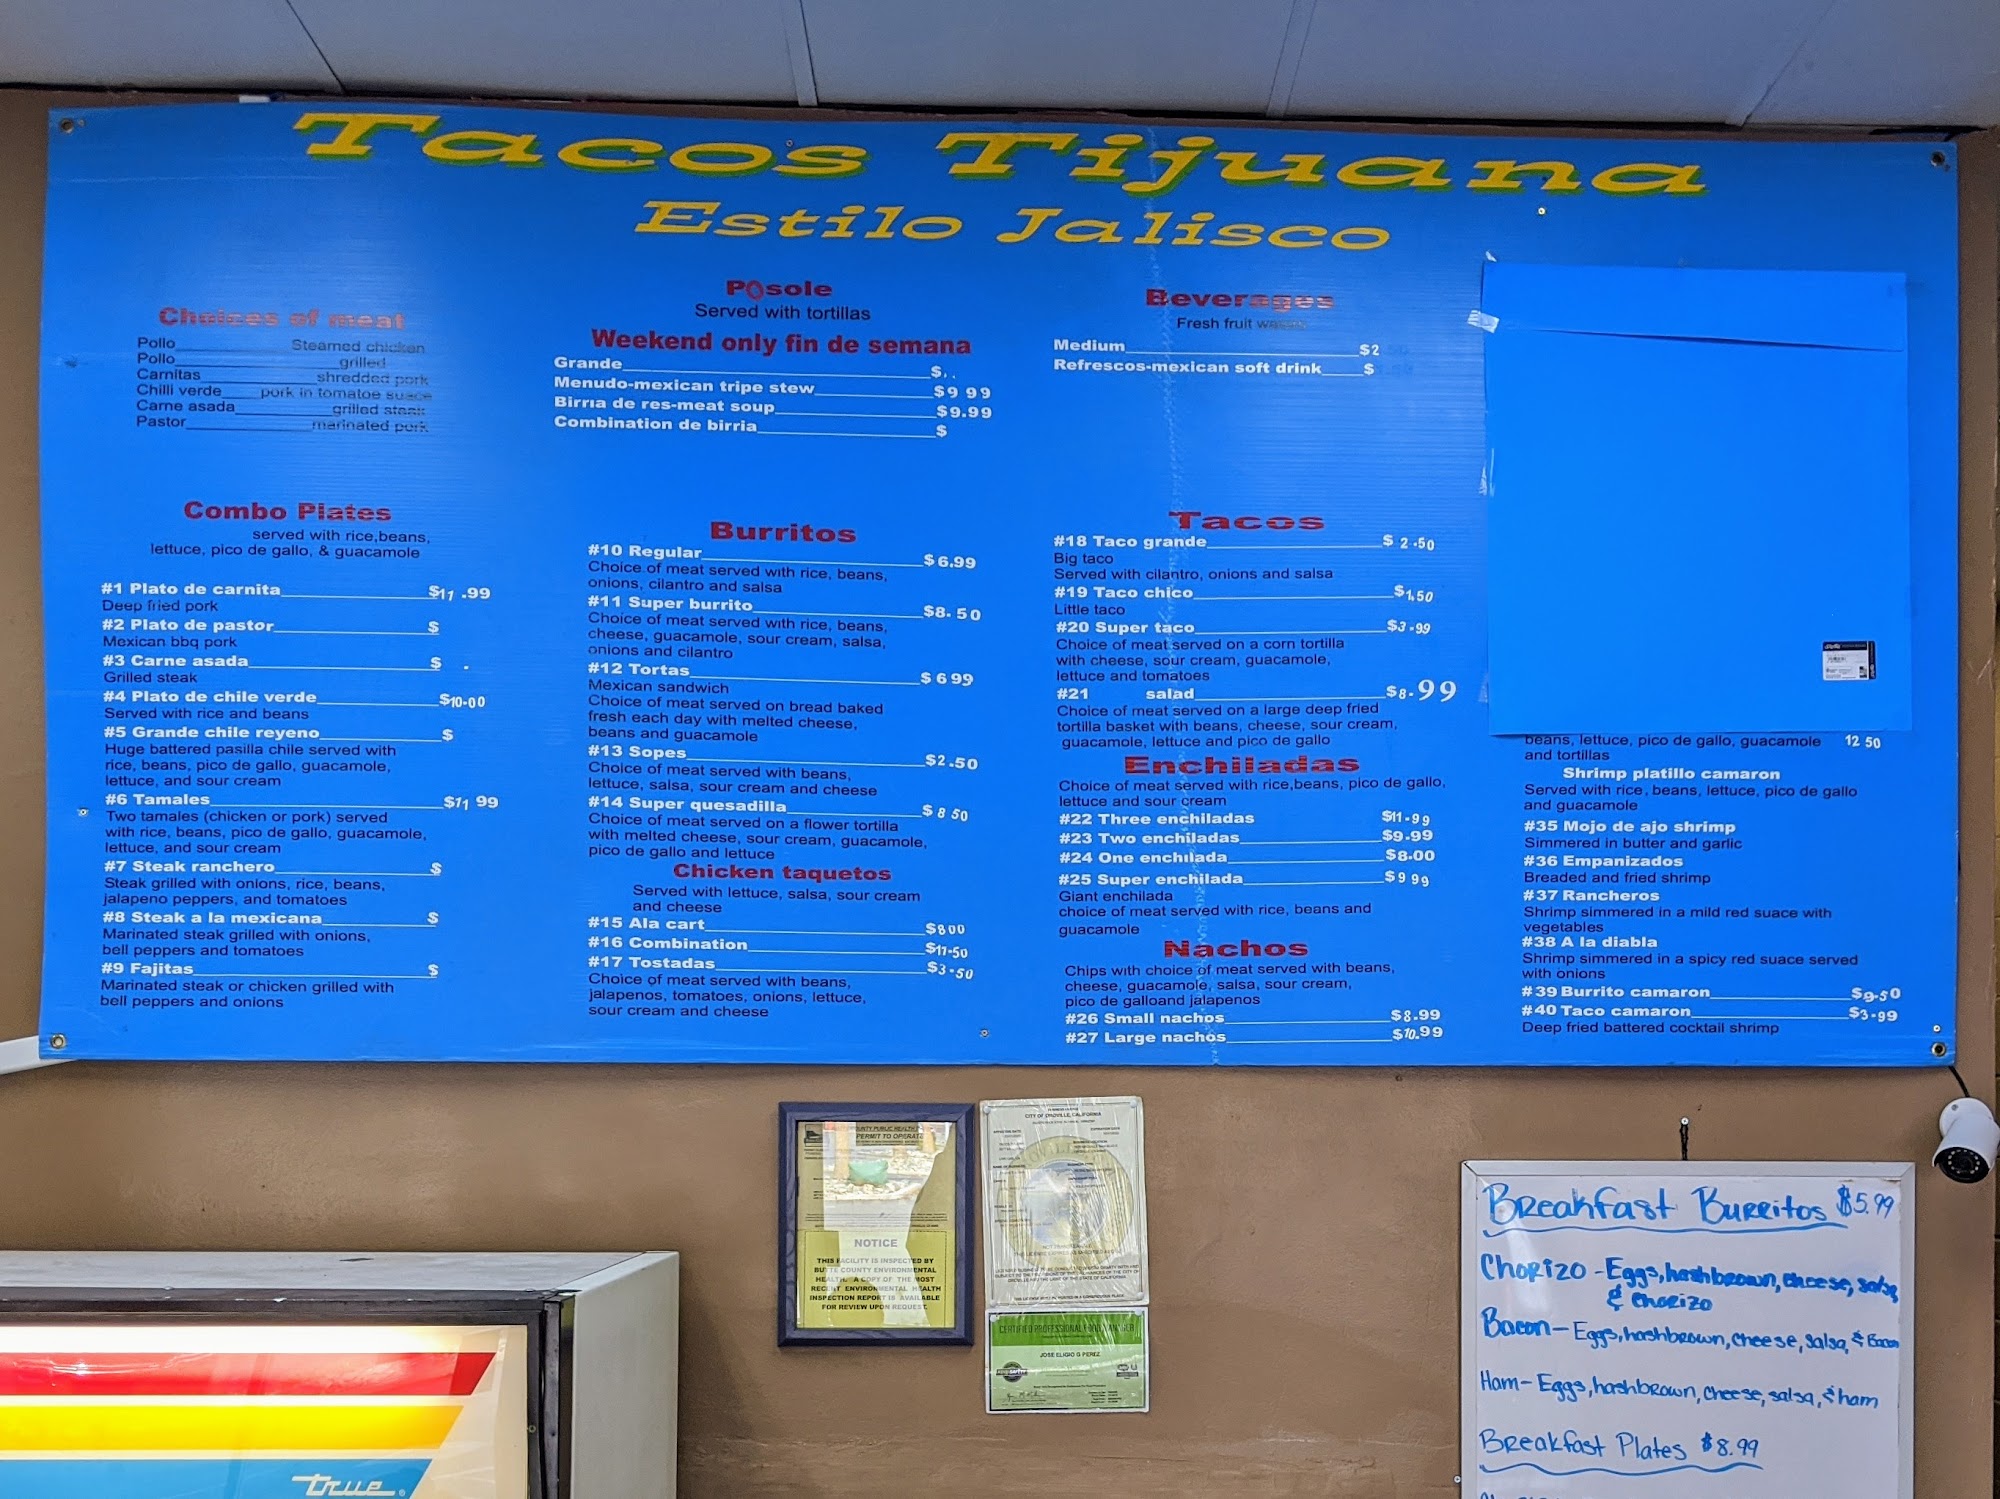 Tacos Tijuana
Estilo Jalisco
Choices of meat
Pollo Steamed chicken
Pollo grilled
Carnitas shredded pork
Chilli verde pork in tomatoe suace
Carne asada grilled steak
Pastor marinated pork
Posole
Served with tortillas
Weekend only fin de semana
Grande $..
Menudo-mexican tripe stew $9 99
Birria de res-meat soup $9.99
Combination de birria $
Beverages
Fresh fruit
Medium $2
Refrescos-mexican soft drink $
Combo Plates
served with rice,beans,
lettuce, pico de gallo, & guacamole
#1 Plato de carnita $11.99
Deep fried pork
#2 Plato de pastor $
Mexican bbq pork
#3 Carne asada $ .
Grilled steak
#4 Plato de chile verde $10.00
Served with rice and beans
#5 Grande chile reyeno $
Huge battered pasilla chile served with
rice, beans, pico de gallo, guacamole,
lettuce, and sour cream
#6 Tamales $11 99
Two tamales (chicken or pork) served
with rice, beans, pico de gallo, guacamole,
lettuce, and sour cream
#7 Steak ranchero $
Steak grilled with onions, rice, beans,
jalapeno peppers, and tomatoes
#8 Steak a la mexicana $
Marinated steak grilled with onions,
bell peppers and tomatoes
#9 Fajitas $
Marinated steak or chicken grilled with
bell peppers and onions
Burritos
#10 Regular $6.99
Choice of meat served with rice, beans,
onions, cilantro and salsa
#11 Super burrito $8.50
Choice of meat served with rice, beans,
cheese, guacamole, sour cream, salsa,
onions and cilantro
#12 Tortas $6 99
Mexican sandwich
Choice of meat served on bread baked
fresh each day with melted cheese,
beans and guacamole
#13 Sopes $2.50
Choice of meat served with beans,
lettuce, salsa, sour cream and cheese
#14 Super quesadilla $8 50
Choice of meat served on a flower tortilla
with melted cheese, sour cream, guacamole,
pico de gallo and lettuce
Chicken taquetos
Served with lettuce, salsa, sour cream
and cheese
#15 Ala cart $8 00
#16 Combination $11.50
#17 Tostadas $3.50
Choice of meat served with beans,
jalapenos, tomatoes, onions, lettuce,
sour cream and cheese
Tacos
#18 Taco grande $2.50
Big taco
Served with cilantro, onions and salsa
#19 Taco chico $1.50
Little taco
#20 Super taco $3.99
Choice of meat served on a corn tortilla
with cheese, sour cream, guacamole,
lettuce and tomatoes
#21 salad $8.99
Choice of meat served on a large deep fried
tortilla basket with beans, cheese, sour cream,
guacamole, lettuce and pico de gallo
Enchiladas
Choice of meat served with rice,beans, pico de gallo,
lettuce and sour cream
#22 Three enchiladas $11.99
#23 Two enchiladas $9.99
#24 One enchilada $8.00
#25 Super enchilada $9 99
Giant enchilada
choice of meat served with rice, beans and
guacamole
Nachos
Chips with choice of meat served with beans,
cheese, guacamole, salsa, sour cream,
pico de galloand jalapenos
#26 Small nachos $8.99
#27 Large nachos $10.99
beans, lettuce, pico de gallo, guacamole 12 50
and tortillas
Shrimp platillo camaron
Served with rice, beans, lettuce, pico de gallo
and guacamole
#35 Mojo de ajo shrimp
Simmered in butter and garlic
#36 Empanizados
Breaded and fried shrimp
#37 Rancheros
Shrimp simmered in a mild red suace with
vegetables
#38 A la diabla
Shrimp simmered in a spicy red suace served
with onions
#39 Burrito camaron $9.50
#40 Taco camaron $3.99
Deep fried battered cocktail shrimp
PERMIT TO OPERATE
NOTICE
THIS FACILITY IS INSPECTED BY
BUTTE COUNTY ENVIRONMENTAL
HEALTH. A COPY OF THE MOST
RECENT ENVIRONMENTAL HEALTH
INSPECTION REPORT IS AVAILABLE
FOR REVIEW UPON REQUEST.
CITY OF OROVILLE, CALIFORNIA
CERTIFIED PROFESSIONAL FOOD MANAGER
JOSE ELIGIO G PEREZ
true
Breakfast Burritos $5.99
Chorizo - Eggs, hashbrown, cheese, salsa,
& Chorizo
Bacon - Eggs, hashbrown, cheese, salsa, & Bacon
Ham - Eggs, hashbrown, cheese, salsa, & ham
Breakfast Plates $8.99